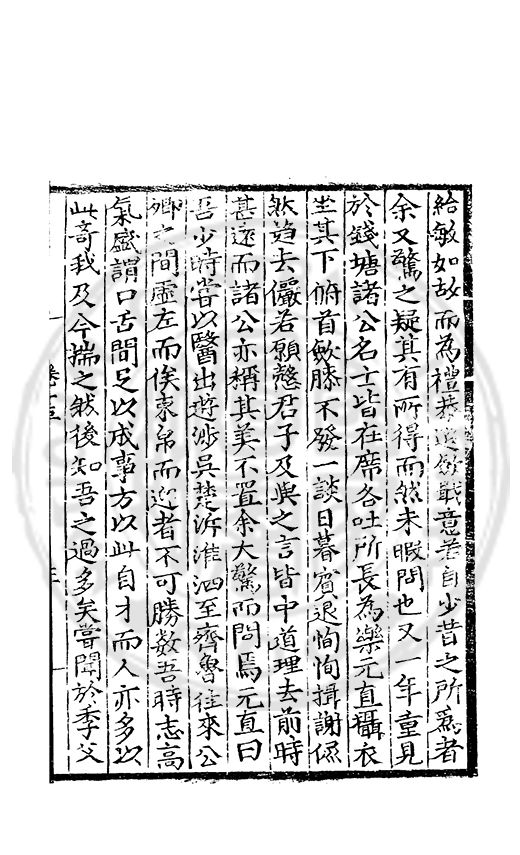 給敏如故而為禮恭遜歛戢意若自少昔之所為者
余又驚之疑其有所得而然未暇問也又一年重見
於錢塘諸公名士皆在席各吐所長為樂元直攝衣
坐其下俯首斂膝不發一談日暮賓退恂恂揖謝傴
然趋去儼若愿慤君子及與之言皆中道理去前時
甚遠而諸公亦稱其美不置余大驚而問焉元直曰
吾少時嘗以醫出遊涉吳楚泝淮泗至齊魯往來公
卿之間虛左而俟束帛而迎者不可勝数吾時志高
氣盛謂口舌間足以成事方以此自才而人亦多以
此奇我及今揣之然後知吾之過多矣嘗聞於季父